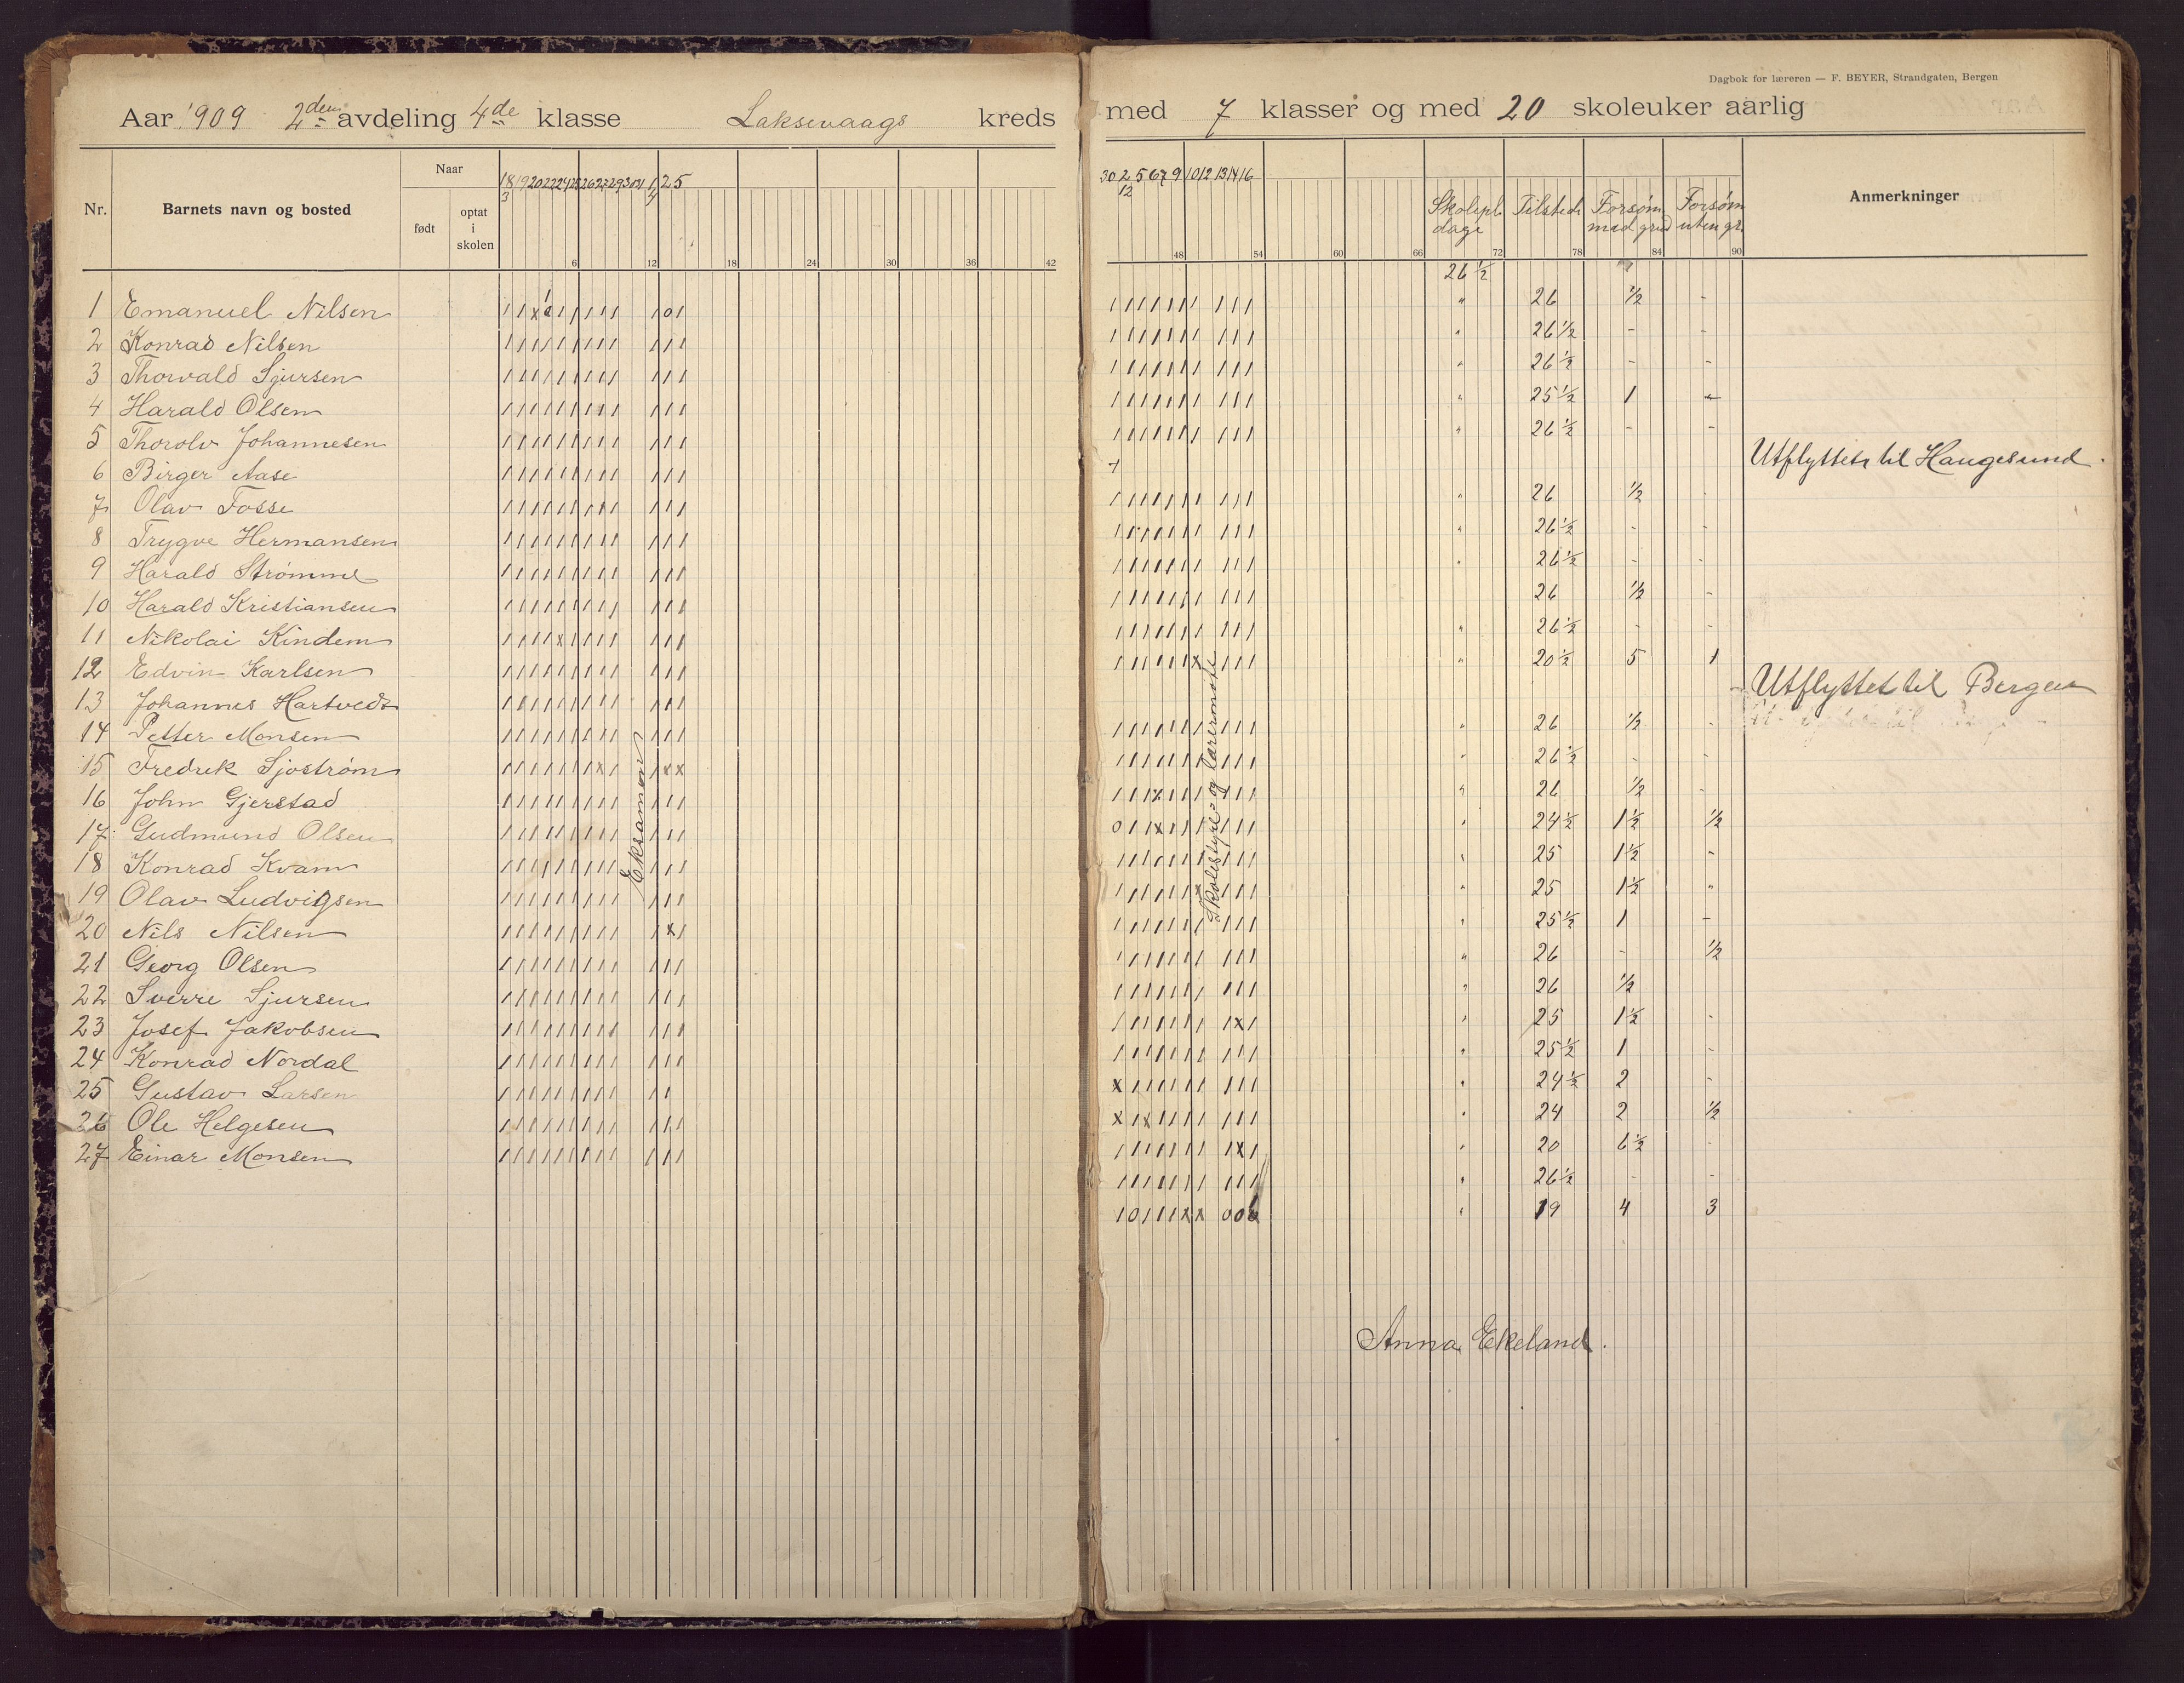 Dagbok for læreren — F. BEYER, Strandgaten, Bergen
Aar 1909 2den avdeling 4de klasse Laksevaags kreds med 7 klasser og med 20 skoleuker aarlig
Nr. Barnets navn og bosted Naar født optat i skolen
18/3 19 20 22 24 25 26 27 29 30 31 1/4 2 5
6 12 18 24 30 36 42
30 2/12 5 6 7 9 10 12 13 14 16
48 54 60 66 72 78 84 90
Skolepl. dage Tilstede Forsøm med grund Forsøm uten gr. Anmerkninger
26 1/2
1 Emanuel Nilsen
2 Konrad Nilsen
3 Thorvald Sjursen
4 Harald Olsen
5 Thorolv Johannesen
6 Birger Aase
7 Olav Fosse
8 Trygve Hermansen
9 Harald Strømme
10 Harald Kristiansen
11 Nikolai Kindem
12 Edvin Karlsen
13 Johannes Hartvedt
14 Petter Monsen
15 Fredrik Sjøstrøm
16 John Gjerstad
17 Gudmund Olsen
18 Konrad Kvam
19 Olav Ludvigsen
20 Nils Nilsen
21 Georg Olsen
22 Sverre Sjursen
23 Josef Jakobsen
24 Konrad Nordal
25 Gustav Larsen
26 Ole Helgesen
27 Einar Monsen
Eksamen
Skolestyre- og lærermøte
" 26 1/2 -
" 26 1/2 - -
" 26 1/2 - -
" 25 1/2 1 -
" 26 1/2 - -
Utflyttet til Haugesund.
" 26 1/2 -
" 26 1/2 - -
" 26 1/2 - -
26 1/2 -
" 26 1/2 - -
" 20 1/2 5 1
Utflyttet til Bergen
" 26 1/2 -
" 26 1/2 - -
" 26 1/2 -
" 24 1/2 1 1/2 1/2
" 25 1 1/2 -
" 25 1 1/2 "
" 25 1/2 1 -
" 26 - 1/2
" 26 1/2
" 25 1 1/2 -
" 25 1/2 1 -
" 24 1/2 2 -
" 24 2 1/2
" 20 6 1/2 -
" 26 1/2 - -
" 19 4 3
Anna Ekeland.